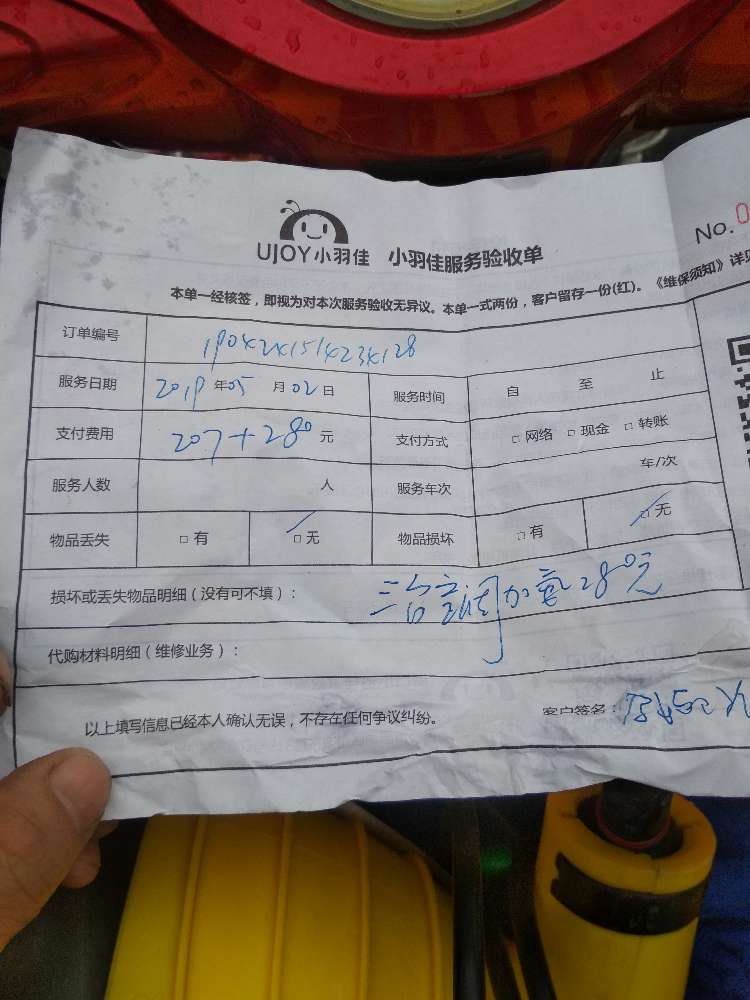 No.0
UJOY小羽佳 小羽佳服务验收单
本单一经核签，即视为对本次服务验收无异议。本单一式两份，客户留存一份(红)。《维保须知》详见
订单编号
服务日期 2019年05月02日 服务时间 自 至 止
支付费用 207+280元 支付方式 □网络 □现金 □转账
服务人数 人 服务车次 车/次
物品丢失 □有 □无 物品损坏 □有 □无
损坏或丢失物品明细（没有可不填）： 三台空调加氟280元
代购材料明细（维修业务）：
以上填写信息已经本人确认无误，不存在任何争议纠纷。 客户签名：